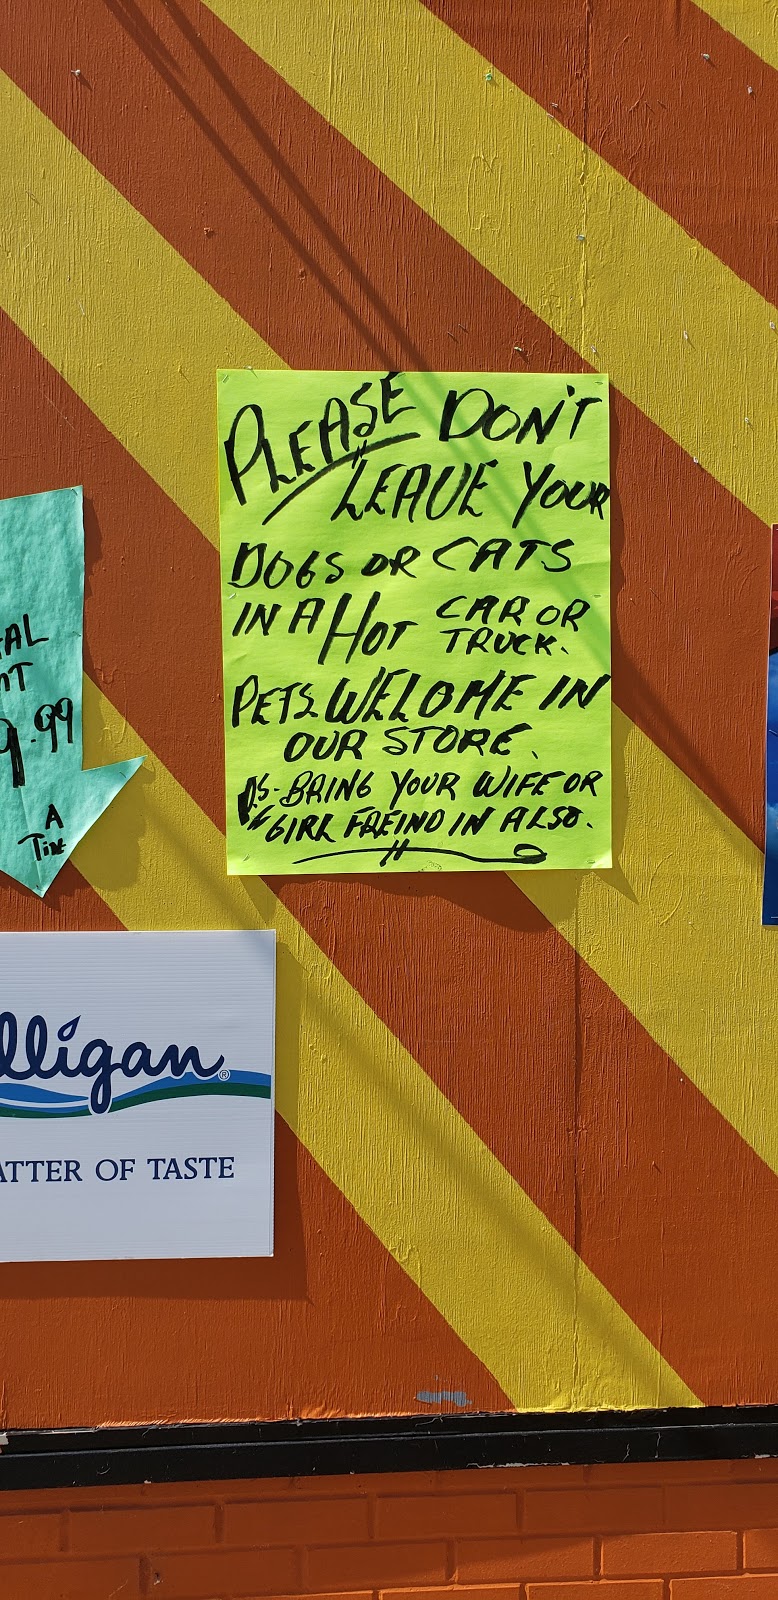 PLEASE DON'T
LEAVE YOUR
DOGS OR CATS
IN A HOT CAR OR
TRUCK.
PETS WELOME IN
OUR STORE.
P.S. BRING YOUR WIFE OR
GIRL FREIND IN ALSO.
AL
NT
9.99
A
Time
lligan®
ATTER OF TASTE